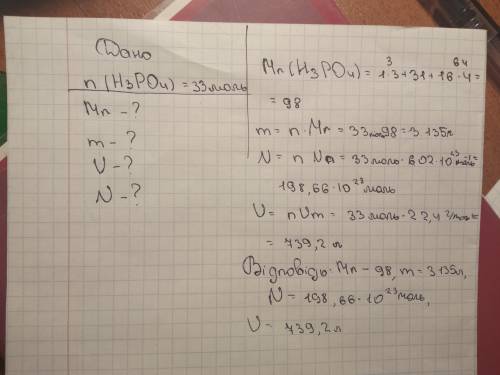 Дано
n (H3PO4) = 33 моль
Mr - ?
m - ?
V - ?
N - ?
3 64
Mr (H3PO4) = 1·3 + 31 + 16·4 =
= 98
m = n · Mr = 33 · 98 = 3 135г
N = n Na = 33 моль · 6 02 · 10²³ моль⁻¹ =
198,66 · 10²³ моль
V = n Vm = 33 моль · 22,4 г/моль =
= 739,2 л
Відповідь · Mr - 98, m = 3135г,
N = 198,66 · 10²³ моль,
V = 739,2 л